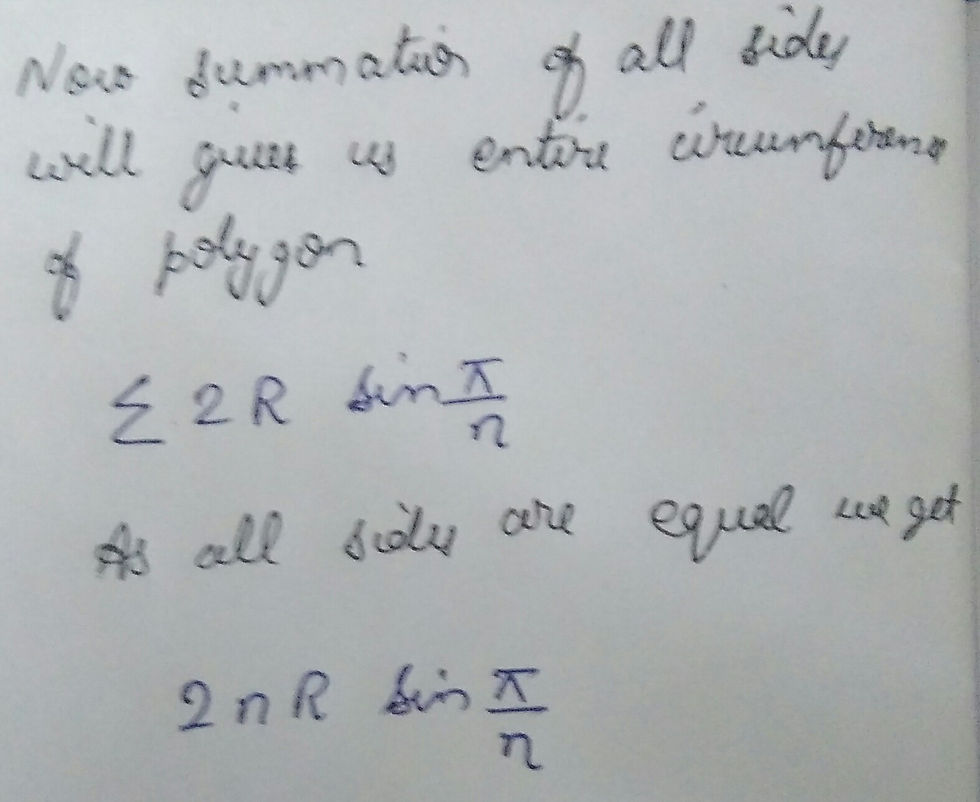 Now summation of all sides
will gives us entire circumference
of polygon
Σ 2R sin π/n
As all sides are equal we get
2nR sin π/n